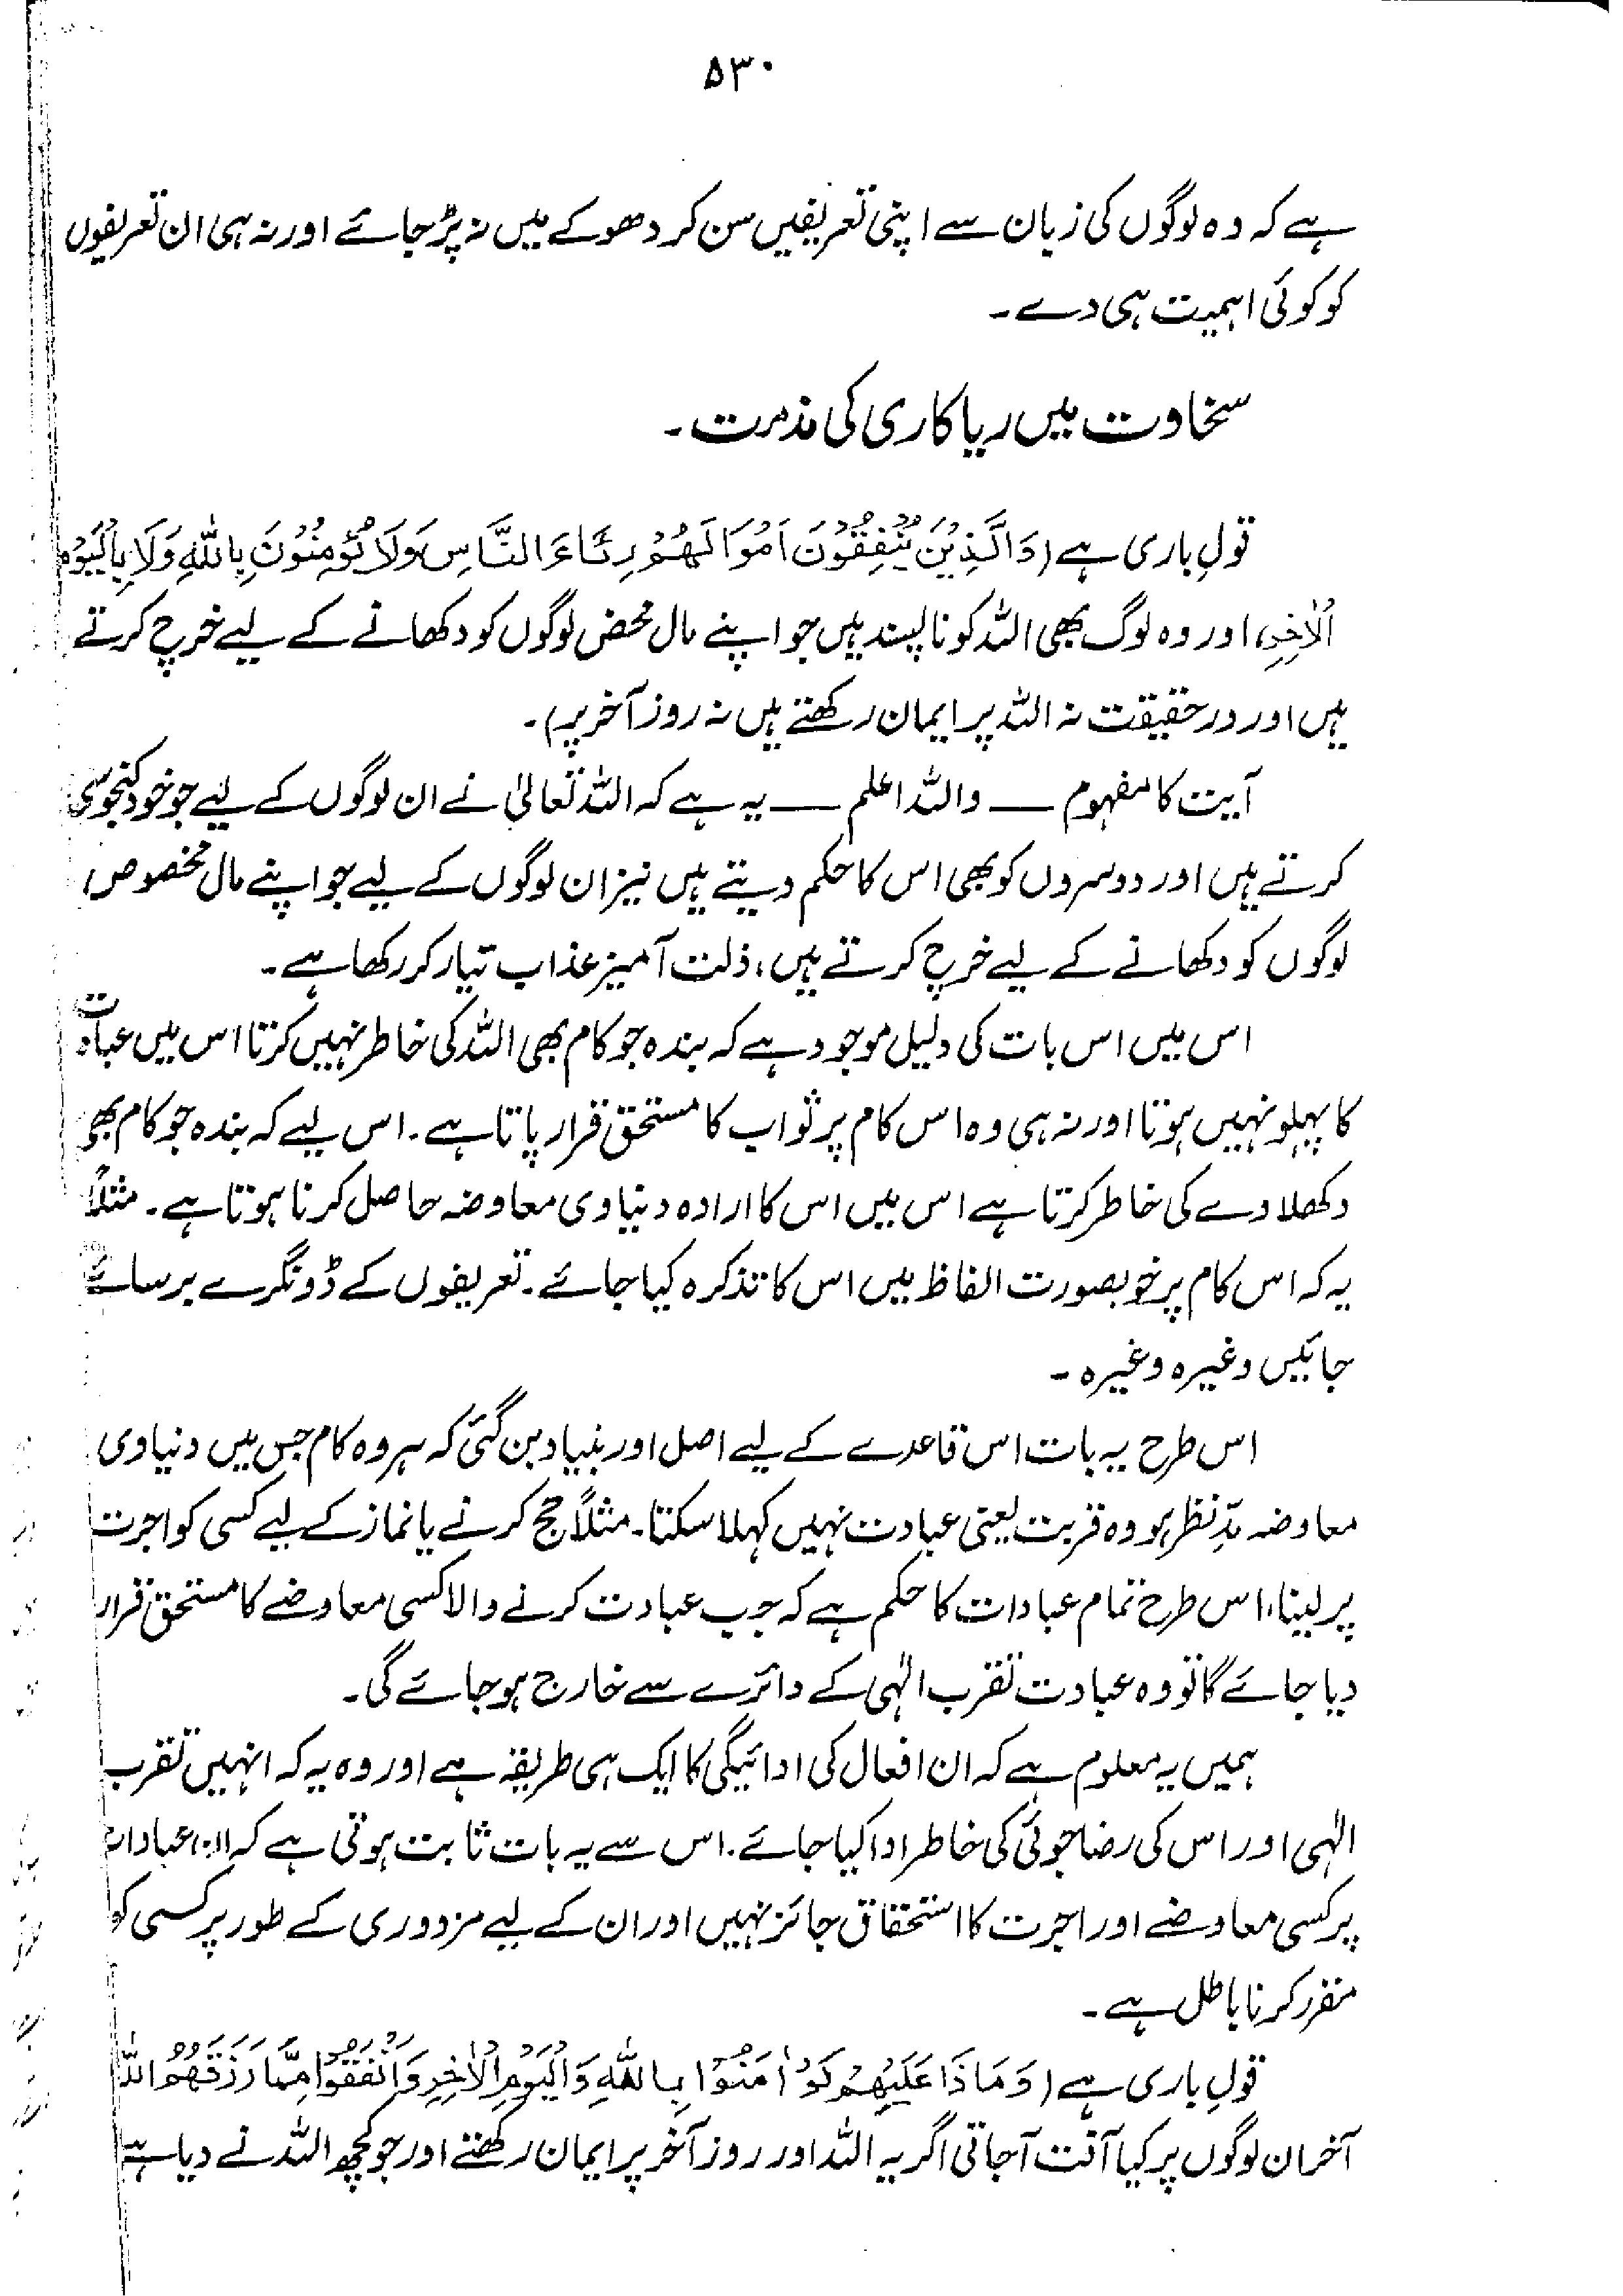 ۵۳۰
ہے کہ وہ لوگوں کی زبان سے اپنی تعریفیں سن کر دھوکے میں نہ پڑ جائے اور نہ ہی ان تعریفوں
کو کوئی اہمیت ہی دے۔
سخاوت میں ریاکاری کی مذمت۔
قولِ باری ہے (وَالَّذِيْنَ يُنْفِقُوْنَ اَمْوَالَهُمْ رِئَاءَ النَّاسِ وَلَا يُؤْمِنُوْنَ بِاللّٰهِ وَلَا بِالْيَوْمِ
الْاٰخِرِ، اور وہ لوگ بھی اللہ کو ناپسند ہیں جو اپنے مال محض لوگوں کو دکھانے کے لیے خرچ کرتے
ہیں اور درحقیقت نہ اللہ پر ایمان رکھتے ہیں نہ روز آخر پر)۔
آیت کا مفہوم — واللہ اعلم — یہ ہے کہ اللہ تعالیٰ نے ان لوگوں کے لیے جو خود کنجوسی
کرتے ہیں اور دوسروں کو بھی اس کا حکم دیتے ہیں نیز ان لوگوں کے لیے جو اپنے مال مخصوص
لوگوں کو دکھانے کے لیے خرچ کرتے ہیں، ذلت آمیز عذاب تیار کر رکھا ہے۔
اس میں اس بات کی دلیل موجود ہے کہ بندہ جو کام بھی اللہ کی خاطر نہیں کرتا اس میں عبادت
کا پہلو نہیں ہوتا اور نہ ہی وہ اس کام پر ثواب کا مستحق قرار پاتا ہے۔ اس لیے کہ بندہ جو کام بھی
دکھلاوے کی خاطر کرتا ہے اس میں اس کا ارادہ دنیاوی معاوضہ حاصل کرنا ہوتا ہے۔ مثلاً
یہ کہ اس کام پر خوبصورت الفاظ میں اس کا تذکرہ کیا جائے۔ تعریفوں کے ڈونگرے برسائے
جائیں وغیرہ وغیرہ۔
اس طرح یہ بات اس قاعدے کے لیے اصل اور بنیاد بن گئی کہ ہر وہ کام جس میں دنیاوی
معاوضہ مدِّنظر ہو وہ قربت یعنی عبادت نہیں کہلا سکتا۔ مثلاً حج کرنے یا نماز کے لیے کسی کو اجرت
پر لینا، اس طرح تمام عبادات کا حکم ہے کہ جب عبادت کرنے والا کسی معاوضے کا مستحق قرار
دیا جائے گا تو وہ عبادت تقرب الٰہی کے دائرے سے خارج ہو جائے گی۔
ہمیں یہ معلوم ہے کہ ان افعال کی ادائیگی کا ایک ہی طریقہ ہے اور وہ یہ کہ انہیں تقرب
الٰہی اور اس کی رضاجوئی کی خاطر ادا کیا جائے۔ اس سے یہ بات ثابت ہوتی ہے کہ ان عبادات
پر کسی معاوضے اور اجرت کا استحقاق جائز نہیں اور ان کے لیے مزدوری کے طور پر کسی کو
مقرر کرنا باطل ہے۔
قولِ باری ہے (وَمَاذَا عَلَيْهِمْ لَوْ اٰمَنُوْا بِاللّٰهِ وَالْيَوْمِ الْاٰخِرِ وَاَنْفَقُوْا مِمَّا رَزَقَهُمُ اللّٰهُ
آخر ان لوگوں پر کیا آفت آجاتی اگر یہ اللہ اور روز آخر پر ایمان رکھتے اور جو کچھ اللہ نے دیا ہے